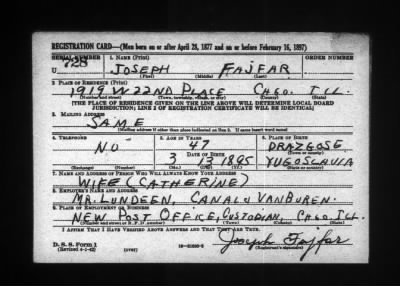 REGISTRATION CARD—(Men born on or after April 28, 1877 and on or before February 16, 1897)
SERIAL NUMBER 1. NAME (Print) ORDER NUMBER
U 728 JOSEPH FAJFAR
(First) (Middle) (Last)
2. PLACE OF RESIDENCE (Print)
1919 W 22ND PLACE CHGO. ILL.
(Number and street) (Town, township, village, or city) (County) (State)
[THE PLACE OF RESIDENCE GIVEN ON THE LINE ABOVE WILL DETERMINE LOCAL BOARD
JURISDICTION; LINE 2 OF REGISTRATION CERTIFICATE WILL BE IDENTICAL]
3. MAILING ADDRESS
SAME
[Mailing address if other than place indicated on line 2. If same insert word same]
4. TELEPHONE 5. AGE IN YEARS 6. PLACE OF BIRTH
NO 47 DRAZGOSE
DATE OF BIRTH (Town or county)
3 13 1895 YUGOSLAVIA
(Exchange) (Number) (Mo.) (Day) (Yr.) (State or country)
7. NAME AND ADDRESS OF PERSON WHO WILL ALWAYS KNOW YOUR ADDRESS
WIFE (CATHERINE)
8. EMPLOYER'S NAME AND ADDRESS
MR. LUNDEEN, CANAL & VAN BUREN.
9. PLACE OF EMPLOYMENT OR BUSINESS
NEW POST OFFICE, CUSTODIAN, CHGO. ILL.
(Number and street or R. F. D. number) (Town) (County) (State)
I AFFIRM THAT I HAVE VERIFIED ABOVE ANSWERS AND THAT THEY ARE TRUE.
D. S. S. Form 1
(Revised 4-1-42) (over) Joseph Fajfar
(Registrant's signature)